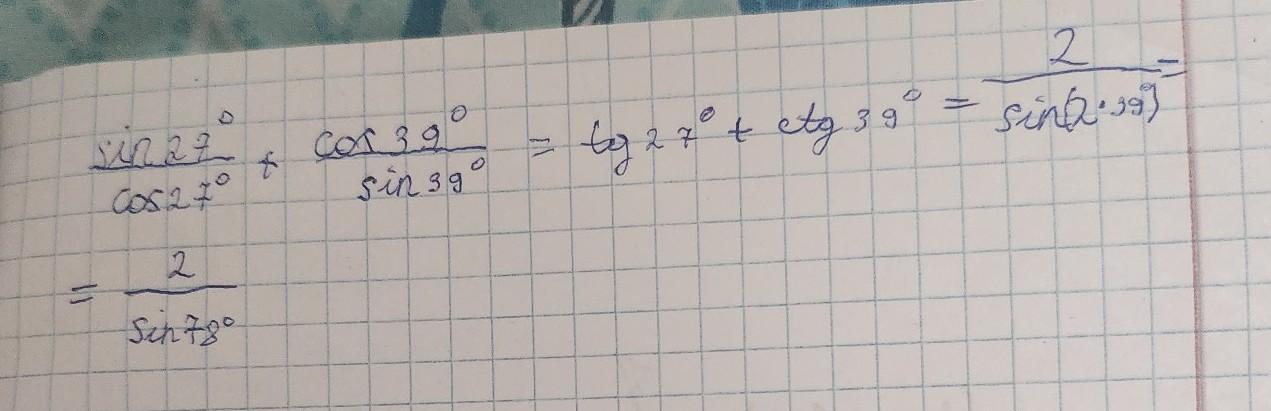 sin27°/cos27° + cos39°/sin39° = tg27° + ctg39° = 2/sin(2·39°) =
= 2/sin78°